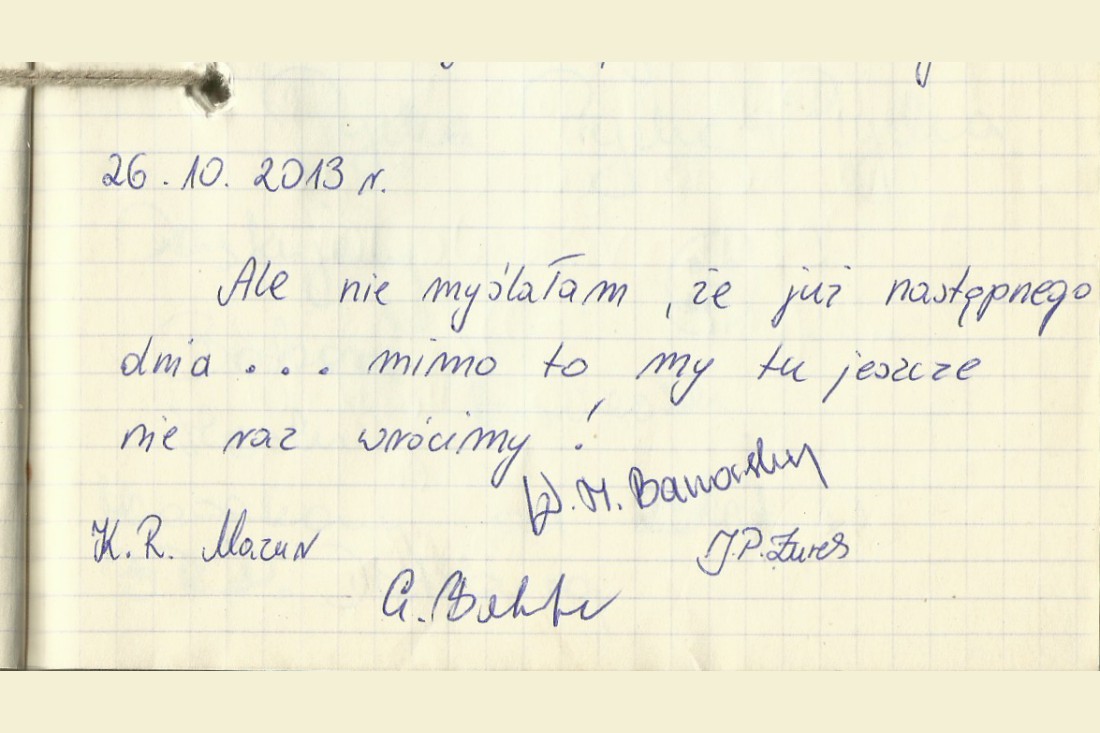 26.10.2013 r.
Ale nie myślałam, że już następnego
dnia... mimo to my tu jeszcze
nie raz wrócimy!
K. R. Mazur